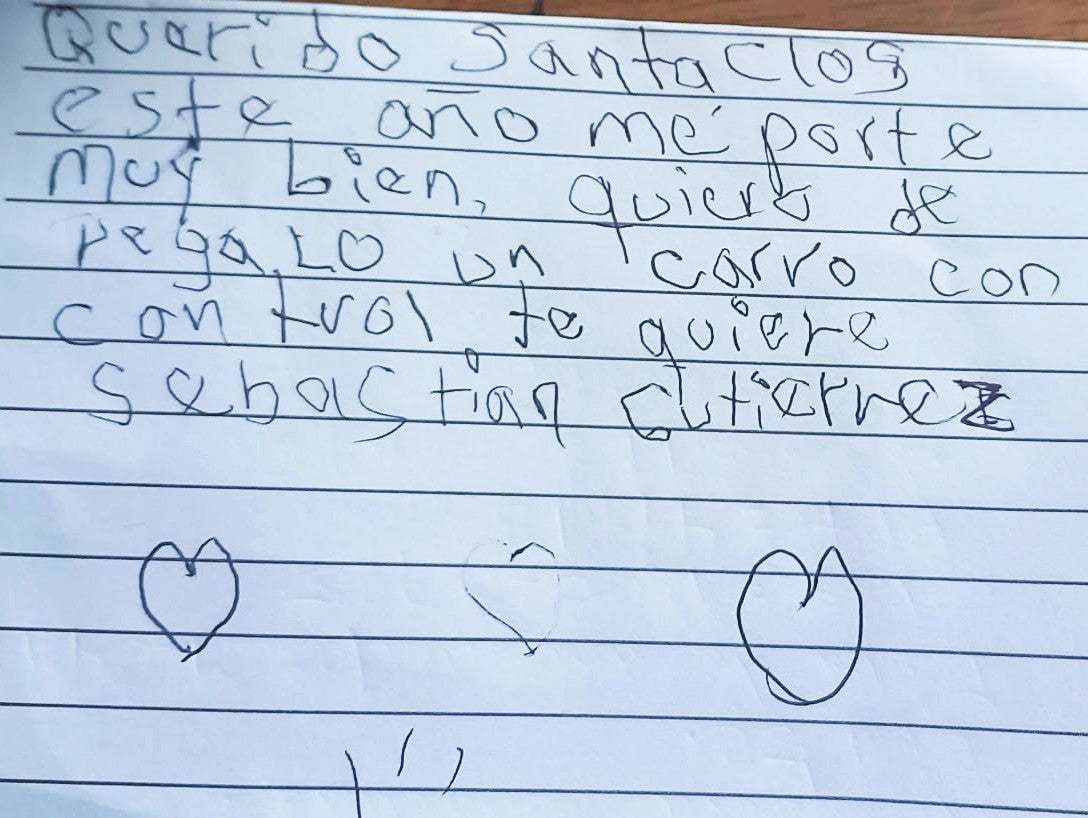 Querido Santa Clos
este año me porte
muy bien, quiero de
regalo un carro con
control, te quiere
Sebastian Gutierrez